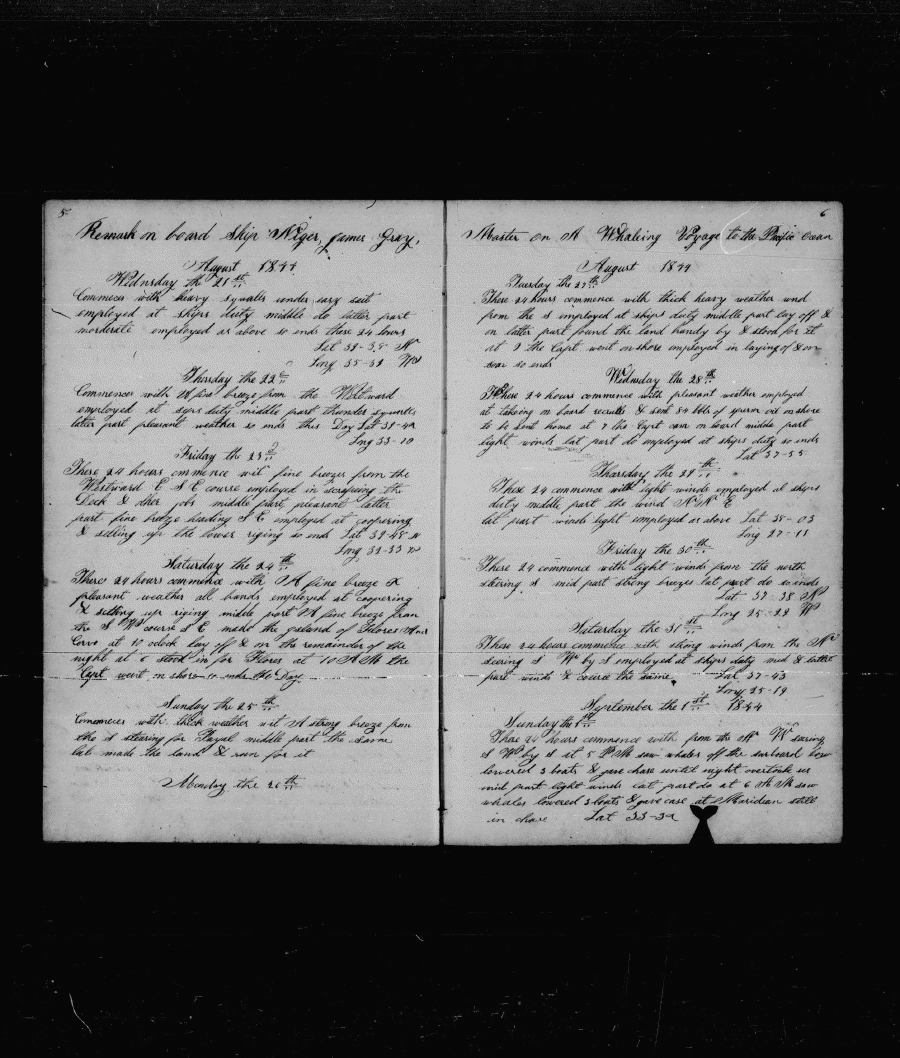 5
Remark on board ship Niger, James Gray,
August 1844
Wednsday the 21st
Commeces with heavy squales under easy sail
employed at ships duty middle do latter part
morderate employed as above so ends these 24 hours
Lat 39-35 N
Long 35-32 W
Thorsday the 22d
Commences with A fine breeze from the Westward
employed at ships duty middle part thunder squales
latter part pleasant weather so ends this Day Lat 39-42
Long 33-10
Friday the 23d
These 24 hours ommence wit fine breezes from the
Westward E S E course employed in scraping the
Deck & other jobs middle part pleasant latter
part fine breeze heading S E employed at coopering
& setting up the lower riging so end Lat 39-48 N
Long 32-33 W
Saturday the 24th
These 24 hours commence with A fine breeze &
pleasant weather all hands employed at coopering
& setting up riging midde part A fine breeze from
the S W course S E made the Island of Flores And
Corvo at 10 oclock lay off & on the remainder of the
night at 6 stood in for Flores at 10 A M the
Capt went on shore so ends the Day
Sunday the 25th
Commeces with thick weather wit A strong breeze from
the S steering for Fayal middle part the same
lat made the land & run for it
Monday the 26th
6
Master on A Whaleing Voyage to the Pacific Ocean
August 1844
Tuesday the 27th
These 24 hours commence with thick heavy weather wnd
from the S employed at ships duty middle part lay off &
on latter part found the land handy by & stood for it
at 9 the Capt went on shore employed in laying of & on
soe so ends
Wednsday the 28th
These 24 hours commence with pleasant weather employed
at takeing on board recruits & sent 84 bbls of sperm oil on shore
to be sent home at 7 the Capt cam on board midde part
light winds lat part do employed at ships duty so ends
Lat 37-55
Thursday the 29th
These 24 commence with light winds employed at ships
duty middle part the wind N N E
lat part winds light employed as above Lat 38-03
Long 27-11
Friday the 30th
These 24 commence with light winds from the north
steering S mid part streng breezes lat part do so ends
Lat 37-38 N
Long 25-22 W
Saturday the 31st
These 24 hours commence with strong winds from the N
steering S W by S employed at ships duty mid & latter
part winds & course the same Lat 37-43
Long 25-19
September the 1st 1844
Sunday the 1st
These 24 hours commence with from the off W stearing
S W by S at 5 P M saw whales off the larboard bow
lowered 3 boats & gave chase until night overtook us
mid part light winds lat part do at 6 A M saw
whales lowered 3 boats & gave case at Maridian still
in chase Lat 33-32